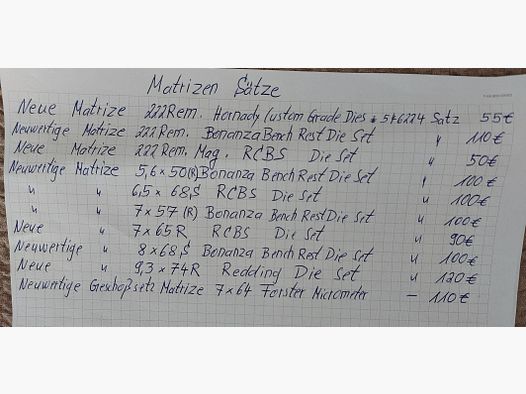 Matrizen Sätze
Neue Matrize 222 Rem. Hornady Custom Grade Dies Satz 55€
Neuwertige Matrize 222 Rem. Bonanza Bench Rest Die Set " 110€
Neue Matrize 222 Rem. Mag. RCBS Die Set " 50€
Neuwertige Matrize 5,6 x 50 (R) Bonanza Bench Rest Die Set " 100€
" " 6,5 x 68,S RCBS Die Set " 100€
" " 7 x 57 (R) Bonanza Bench Rest Die Set " 100€
Neue " 7 x 65 R RCBS Die Set " 90€
Neuwertige " 8 x 68,S Bonanza Bench Rest Die Set " 100€
Neue " 9,3 x 74 R Redding Die Set " 120€
Neuwertige Geschoßsetz Matrize 7 x 64 Forster Micrometer — 110€